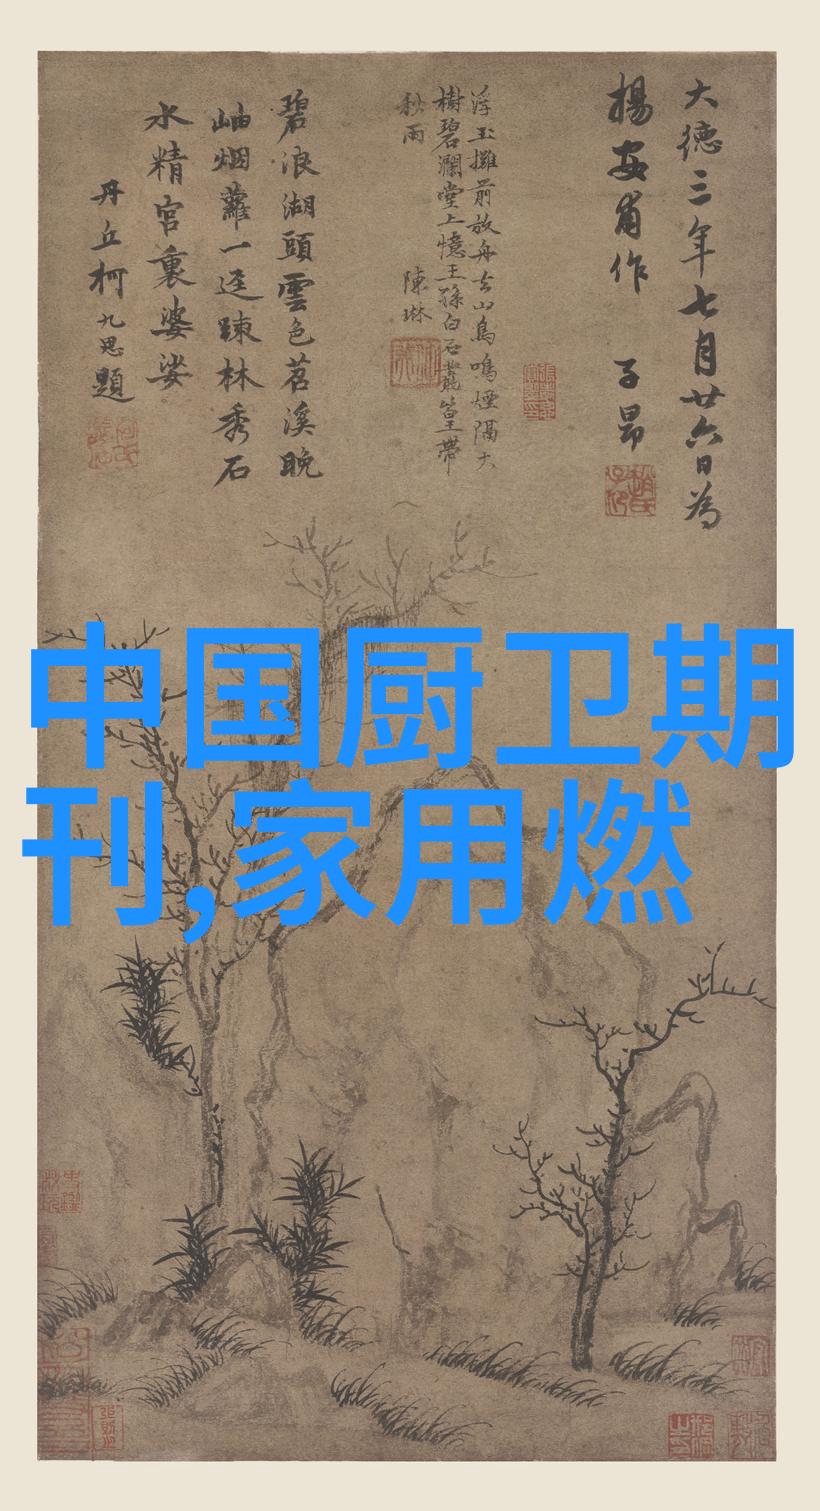 大德三年七月廿六日為
楊安甫作 子昂
浮玉攤前放舟去山鳥鳴煙隔大
樹碧瀾堂上憶王孫白石叢篁帶
秋雨 陳琳
碧浪湖頭雲色苕溪晚
岫烟蘿一逕踈林秀石
水精宮裏婆娑
丹丘柯九思題
中国厨卫期
刊,家用燃